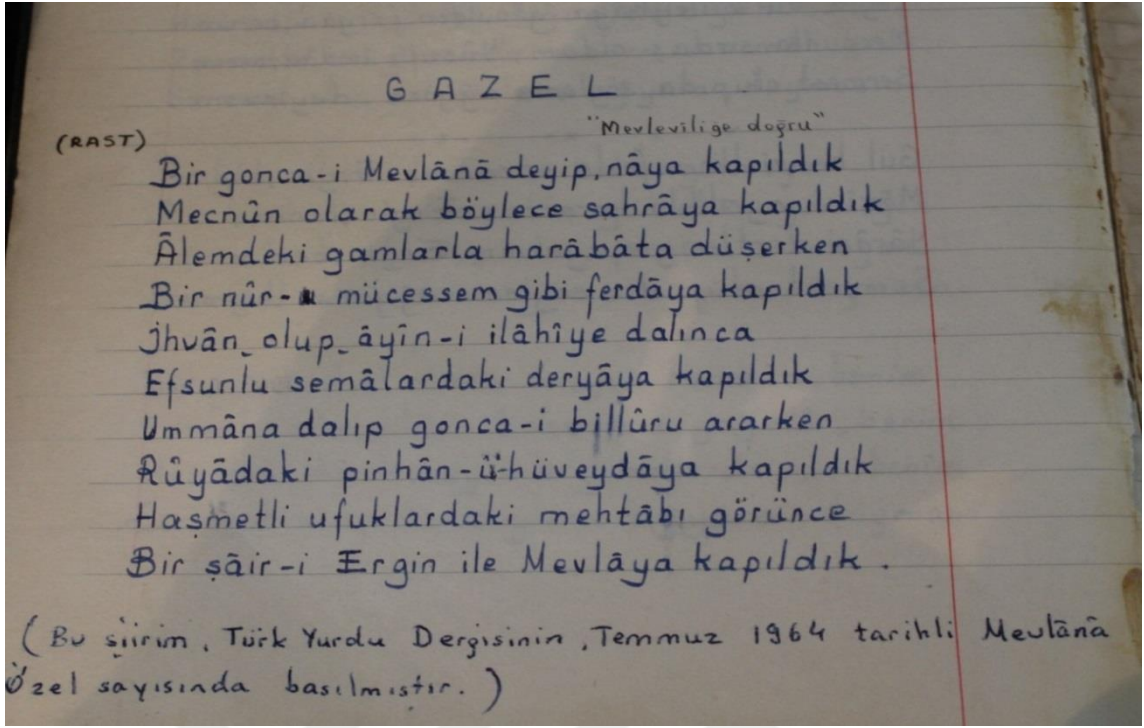 G A Z E L
"Mevleviliğe doğru"
(RAST)
Bir gonca-i Mevlānā deyip, nāya kapıldık
Mecnûn olarak böylece sahrāya kapıldık
Ālemdeki gamlarla harâbâta düşerken
Bir nûr-u mücessem gibi ferdāya kapıldık
İhvân olup âyîn-i ilâhîye dalınca
Efsunlu semâlardaki deryāya kapıldık
Ummâna dalıp gonca-i billûru ararken
Rûyādaki pinhân-ü-hüveydāya kapıldık
Haşmetli ufuklardaki mehtâbı görünce
Bir şāir-i Ergin ile Mevlāya kapıldık.
(Bu şiirim, Türk Yurdu Dergisinin, Temmuz 1964 tarihli Mevlānā
Özel sayısında basılmıştır.)